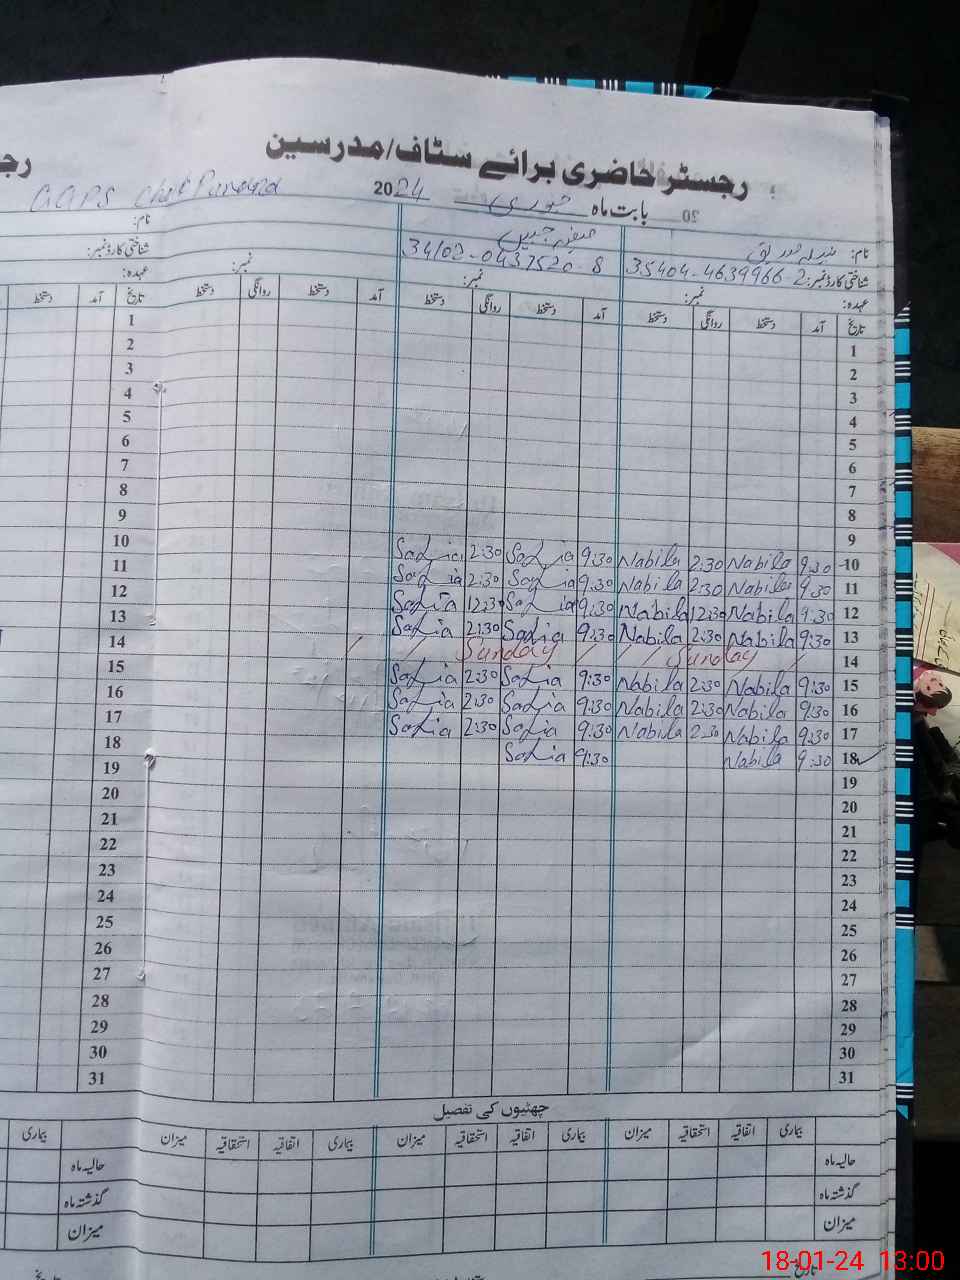 رجسٹر حاضری برائے سٹاف/مدرسین
رجسـ
بابت ماہ جنوری 2024
20
GGPS Chak
نام:
نام:
شناختی کارڈ نمبر: 35404-4639966-2
34102-0437520-8
شناختی کارڈ نمبر:
عہدہ: نمبر: نمبر:
عہدہ: نمبر:
تاریخ آمد دستخط روانگی دستخط آمد دستخط روانگی دستخط آمد دستخط روانگی دستخط
تاریخ آمد دستخط
1 1
2 2
3 3
4 4
5 5
6 6
7 7
8 8
9 9
10 Sadia 2:30 Sadia 9:30 Nabila 2:30 Nabila 9:30 10
11 Sadia 2:30 Sadia 9:30 Nabila 2:30 Nabila 9:30 11
12 Sadia 12:30 Sadia 9:30 Nabila 12:30 Nabila 9:30 12
13 Sadia 2:30 Sadia 9:30 Nabila 2:30 Nabila 9:30 13
14 Sunday Sunday 14
15 Sadia 2:30 Sadia 9:30 Nabila 2:30 Nabila 9:30 15
16 Sadia 2:30 Sadia 9:30 Nabila 2:30 Nabila 9:30 16
17 Sadia 2:30 Sadia 9:30 Nabila 2:30 Nabila 9:30 17
18 Sadia 9:30 Nabila 9:30 18
19 19
20 20
21 21
22 22
23 23
24 24
25 25
26 26
27 27
28 28
29 29
30 30
31 31
چھٹیوں کی تفصیل
بیماری اتفاقیہ استحقاقیہ میزان بیماری اتفاقیہ استحقاقیہ میزان بیماری اتفاقیہ استحقاقیہ میزان
بیماری
حالیہ ماہ حالیہ ماہ
گذشتہ ماہ گذشتہ ماہ
میزان میزان
تاریخ
18-01-24 13:00